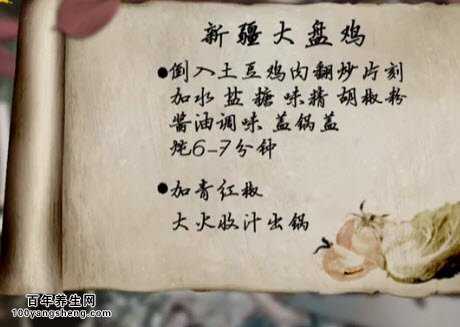 新疆大盘鸡
●倒入土豆鸡肉翻炒片刻
加水 盐 糖 味精 胡椒粉
酱油调味 盖锅盖
炖6-7分钟
●加青红椒
大火收汁出锅
百年养生网
100yangsheng.com